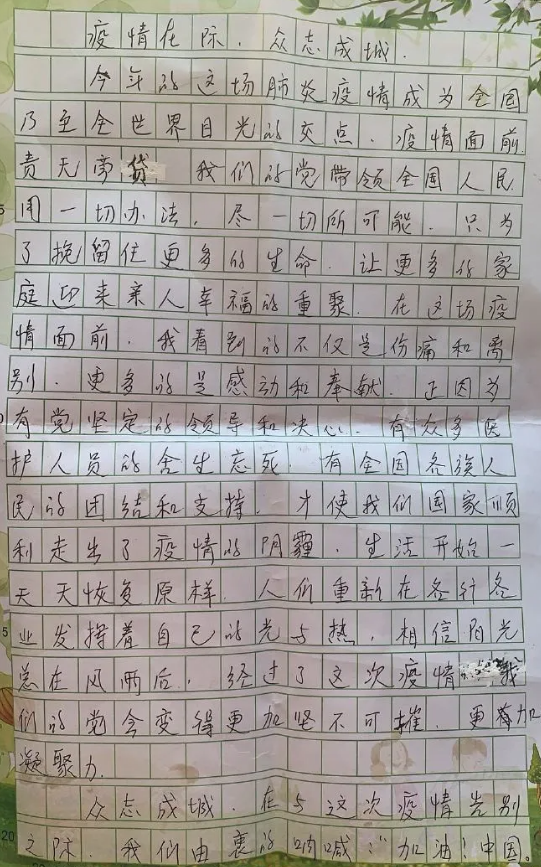 疫情在际，众志成城．
今年的这场肺炎疫情成为全国
乃至全世界目光的交点．疫情面前
责无旁贷 我们的党带领全国人民
用一切办法．尽一切所可能．只为
了挽留住更多的生命．让更多的家
庭迎来亲人幸福的重聚．在这场疫
情面前．我看到的不仅是伤痛和离
别．更多的是感动和奉献．正因为
有党坚定的领导和决心．有众多医
护人员的舍生忘死．有全国各族人
民的团结和支持．才使我们国家顺
利走出了疫情的阴霾．生活开始一
天天恢复原样．人们重新在各行各
业发挥着自己的光与热．相信阳光
总在风雨后．经过了这次疫情 我
们的党会变得更加坚不可摧．更有加
凝聚力．
众志成城．在与这次疫情告别
之际．我们由衷的呐喊：“加油！中国。
5
5
20